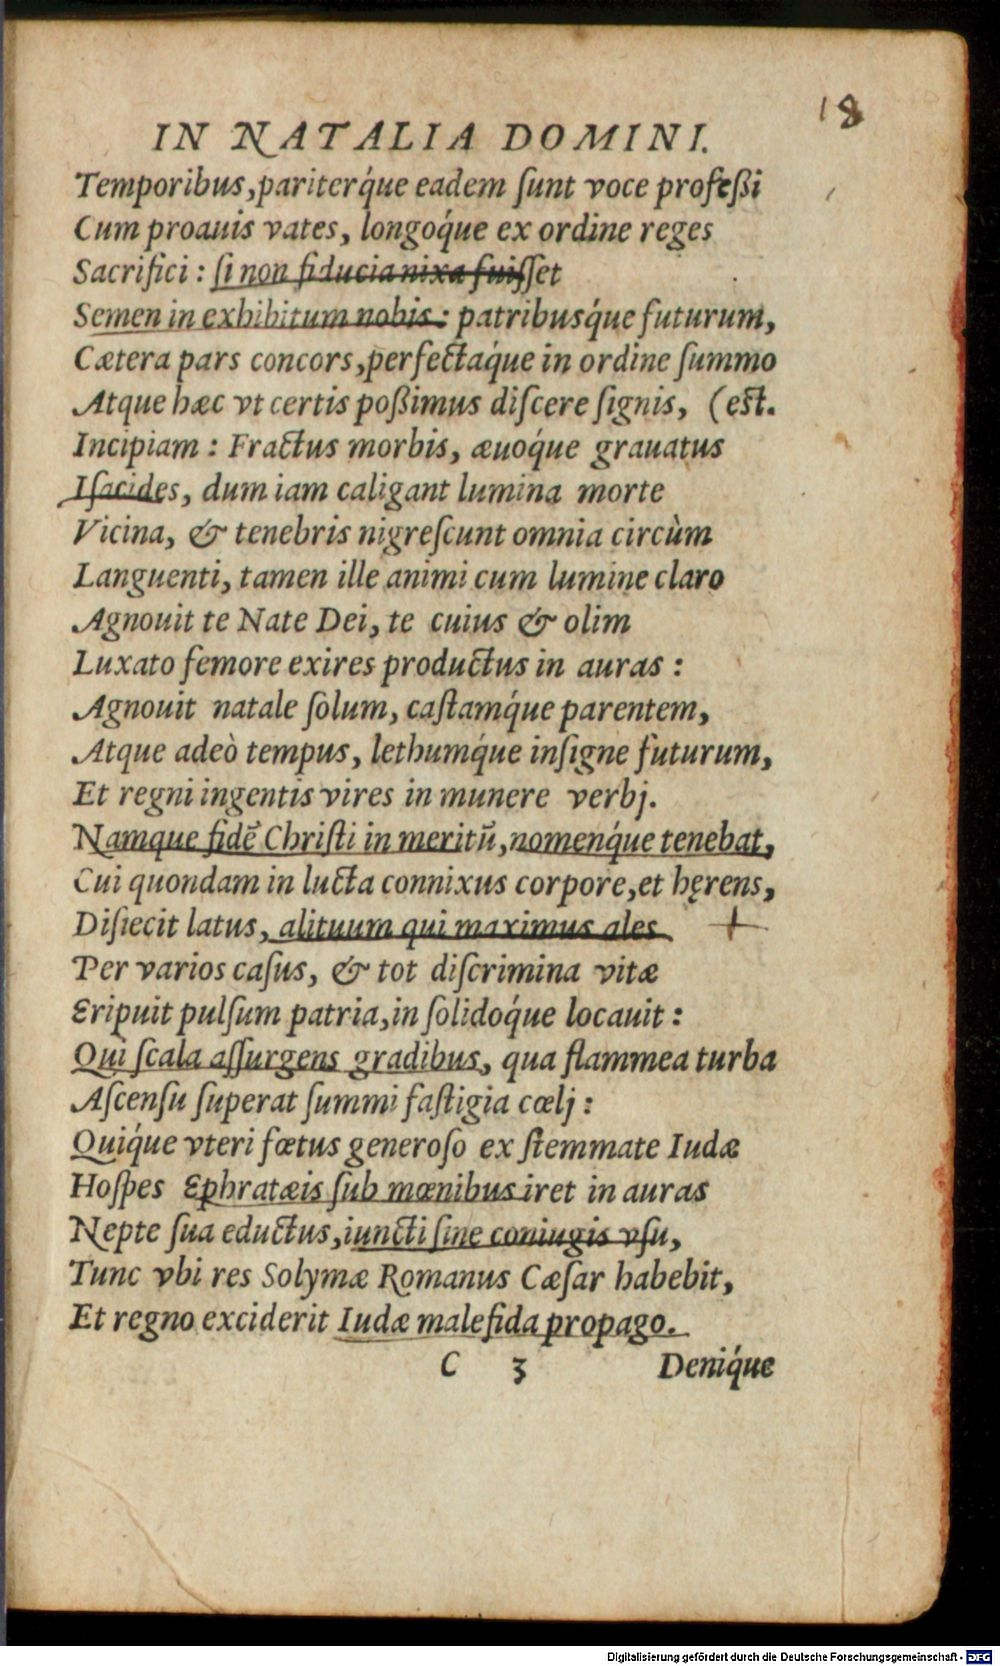 18
IN NATALIA DOMINI.
Temporibus,pariterq́ue eadem ſunt voce profeßi
Cum proauis vates, longoq́ue ex ordine reges
Sacrifici : ſi non fiducia nixa fuiſſet
Semen in exhibitum nobis : patribusq́ue futurum,
Cætera pars concors,perfectaq́ue in ordine ſummo
Atque hæc vt certis poßimus diſcere ſignis, (est.
Incipiam : Fractus morbis, æuoq́ue grauatus
Iſacides, dum iam caligant lumina morte
Vicina, & tenebris nigreſcunt omnia circùm
Languenti, tamen ille animi cum lumine claro
Agnouit te Nate Dei, te cuius & olim
Luxato femore exires productus in auras :
Agnouit natale ſolum, caſtamq́ue parentem,
Atque adeò tempus, lethumq́ue inſigne futurum,
Et regni ingentis vires in munere verbj.
Namque fidē Chriſti in meritū,nomenq́ue tenebat,
Cui quondam in lucta connixus corpore,et hęrens,
Diſiecit latus, alituum qui maximus ales
Per varios caſus, & tot diſcrimina vitæ
Eripuit pulſum patria,in ſolidoq́ue locauit :
Qui ſcala aſſurgens gradibus, qua flammea turba
Aſcenſu ſuperat ſummi faſtigia cœlj :
Quiq́ue vteri fœtus generoſo ex ſtemmate Iudæ
Hoſpes Ephratæis ſub mœnibus iret in auras
Nepte ſua eductus,iuncti ſine coniugis vſu,
Tunc vbi res Solymæ Romanus Cæſar habebit,
Et regno exciderit Iudæ malefida propago.
C 3 Deniq́ue
Digitalisierung gefördert durch die Deutsche Forschungsgemeinschaft - DFG